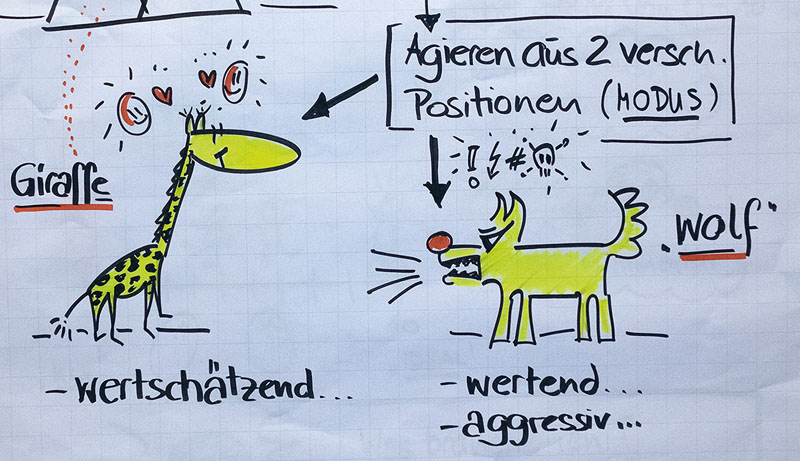 Agieren aus 2 versch.
Positionen (MODUS)
Giraffe
„Wolf"
- wertschätzend...
- wertend...
- aggressiv...